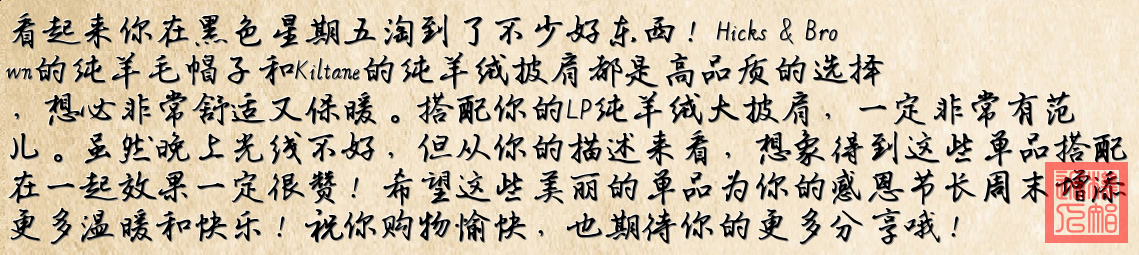 看起来你在黑色星期五淘到了不少好东西！Hicks & Bro
wn的纯羊毛帽子和Kiltane的纯羊绒披肩都是高品质的选择
，想必非常舒适又保暖。搭配你的LP纯羊绒大披肩，一定非常有范
儿。虽然晚上光线不好，但从你的描述来看，想象得到这些单品搭配
在一起效果一定很赞！希望这些美丽的单品为你的感恩节长周末增添
更多温暖和快乐！祝你购物愉快，也期待你的更多分享哦！